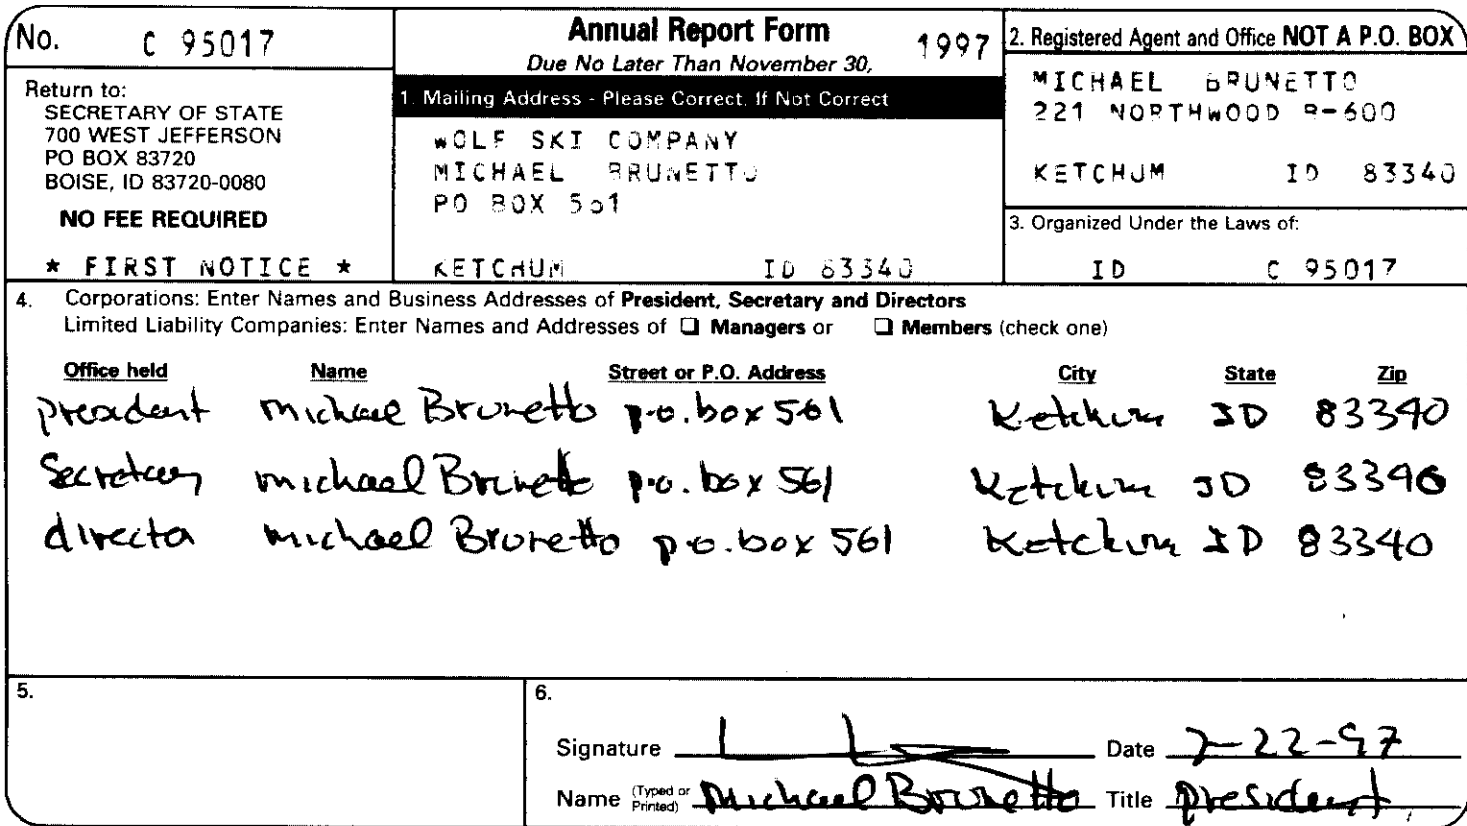 No. C 95017
Return to:
SECRETARY OF STATE
700 WEST JEFFERSON
PO BOX 83720
BOISE, ID 83720-0080
NO FEE REQUIRED
* FIRST NOTICE *
Annual Report Form 1997
Due No Later Than November 30,
1. Mailing Address - Please Correct, If Not Correct
WOLF SKI COMPANY
MICHAEL BRUNETTO
PO BOX 561
KETCHUM ID 83340
2. Registered Agent and Office NOT A P.O. BOX
MICHAEL BRUNETTO
221 NORTHWOOD B-600
KETCHUM ID 83340
3. Organized Under the Laws of:
ID C 95017
4. Corporations: Enter Names and Business Addresses of President, Secretary and Directors
Limited Liability Companies: Enter Names and Addresses of ❑ Managers or ❑ Members (check one)
Office held Name Street or P.O. Address City State Zip
president Michael Brunetto p.o. box 561 Ketchum ID 83340
Secretary michael Brunetto p.o. box 561 Ketchum ID 83340
director michael Brunetto p.o. box 561 Ketchum ID 83340
5.
6.
Signature Date 7-22-97
Name (Typed or Printed) Michael Brunetto Title president